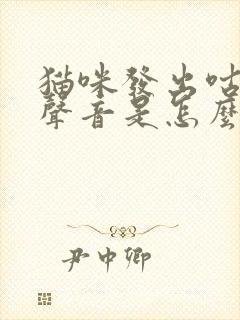 猫咪發出咕
聲音是怎麼
尹中卿